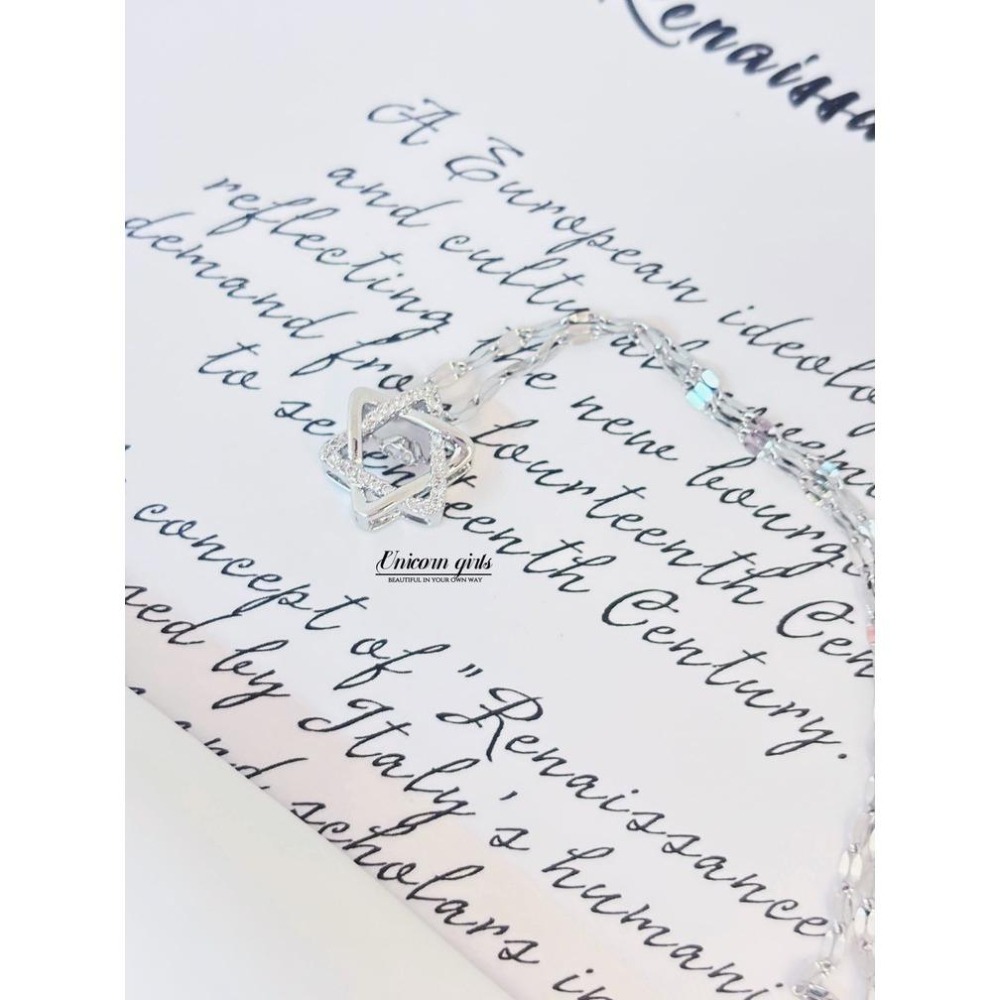 Renaissa
A European ideolo
and cultural
reflecting the new bourg
demand from fourteenth Cen
to seventeenth Century.
concept of "Renaissance
sed by Italy's humani
and scholars in
Unicorn girls
BEAUTIFUL IN YOUR OWN WAY